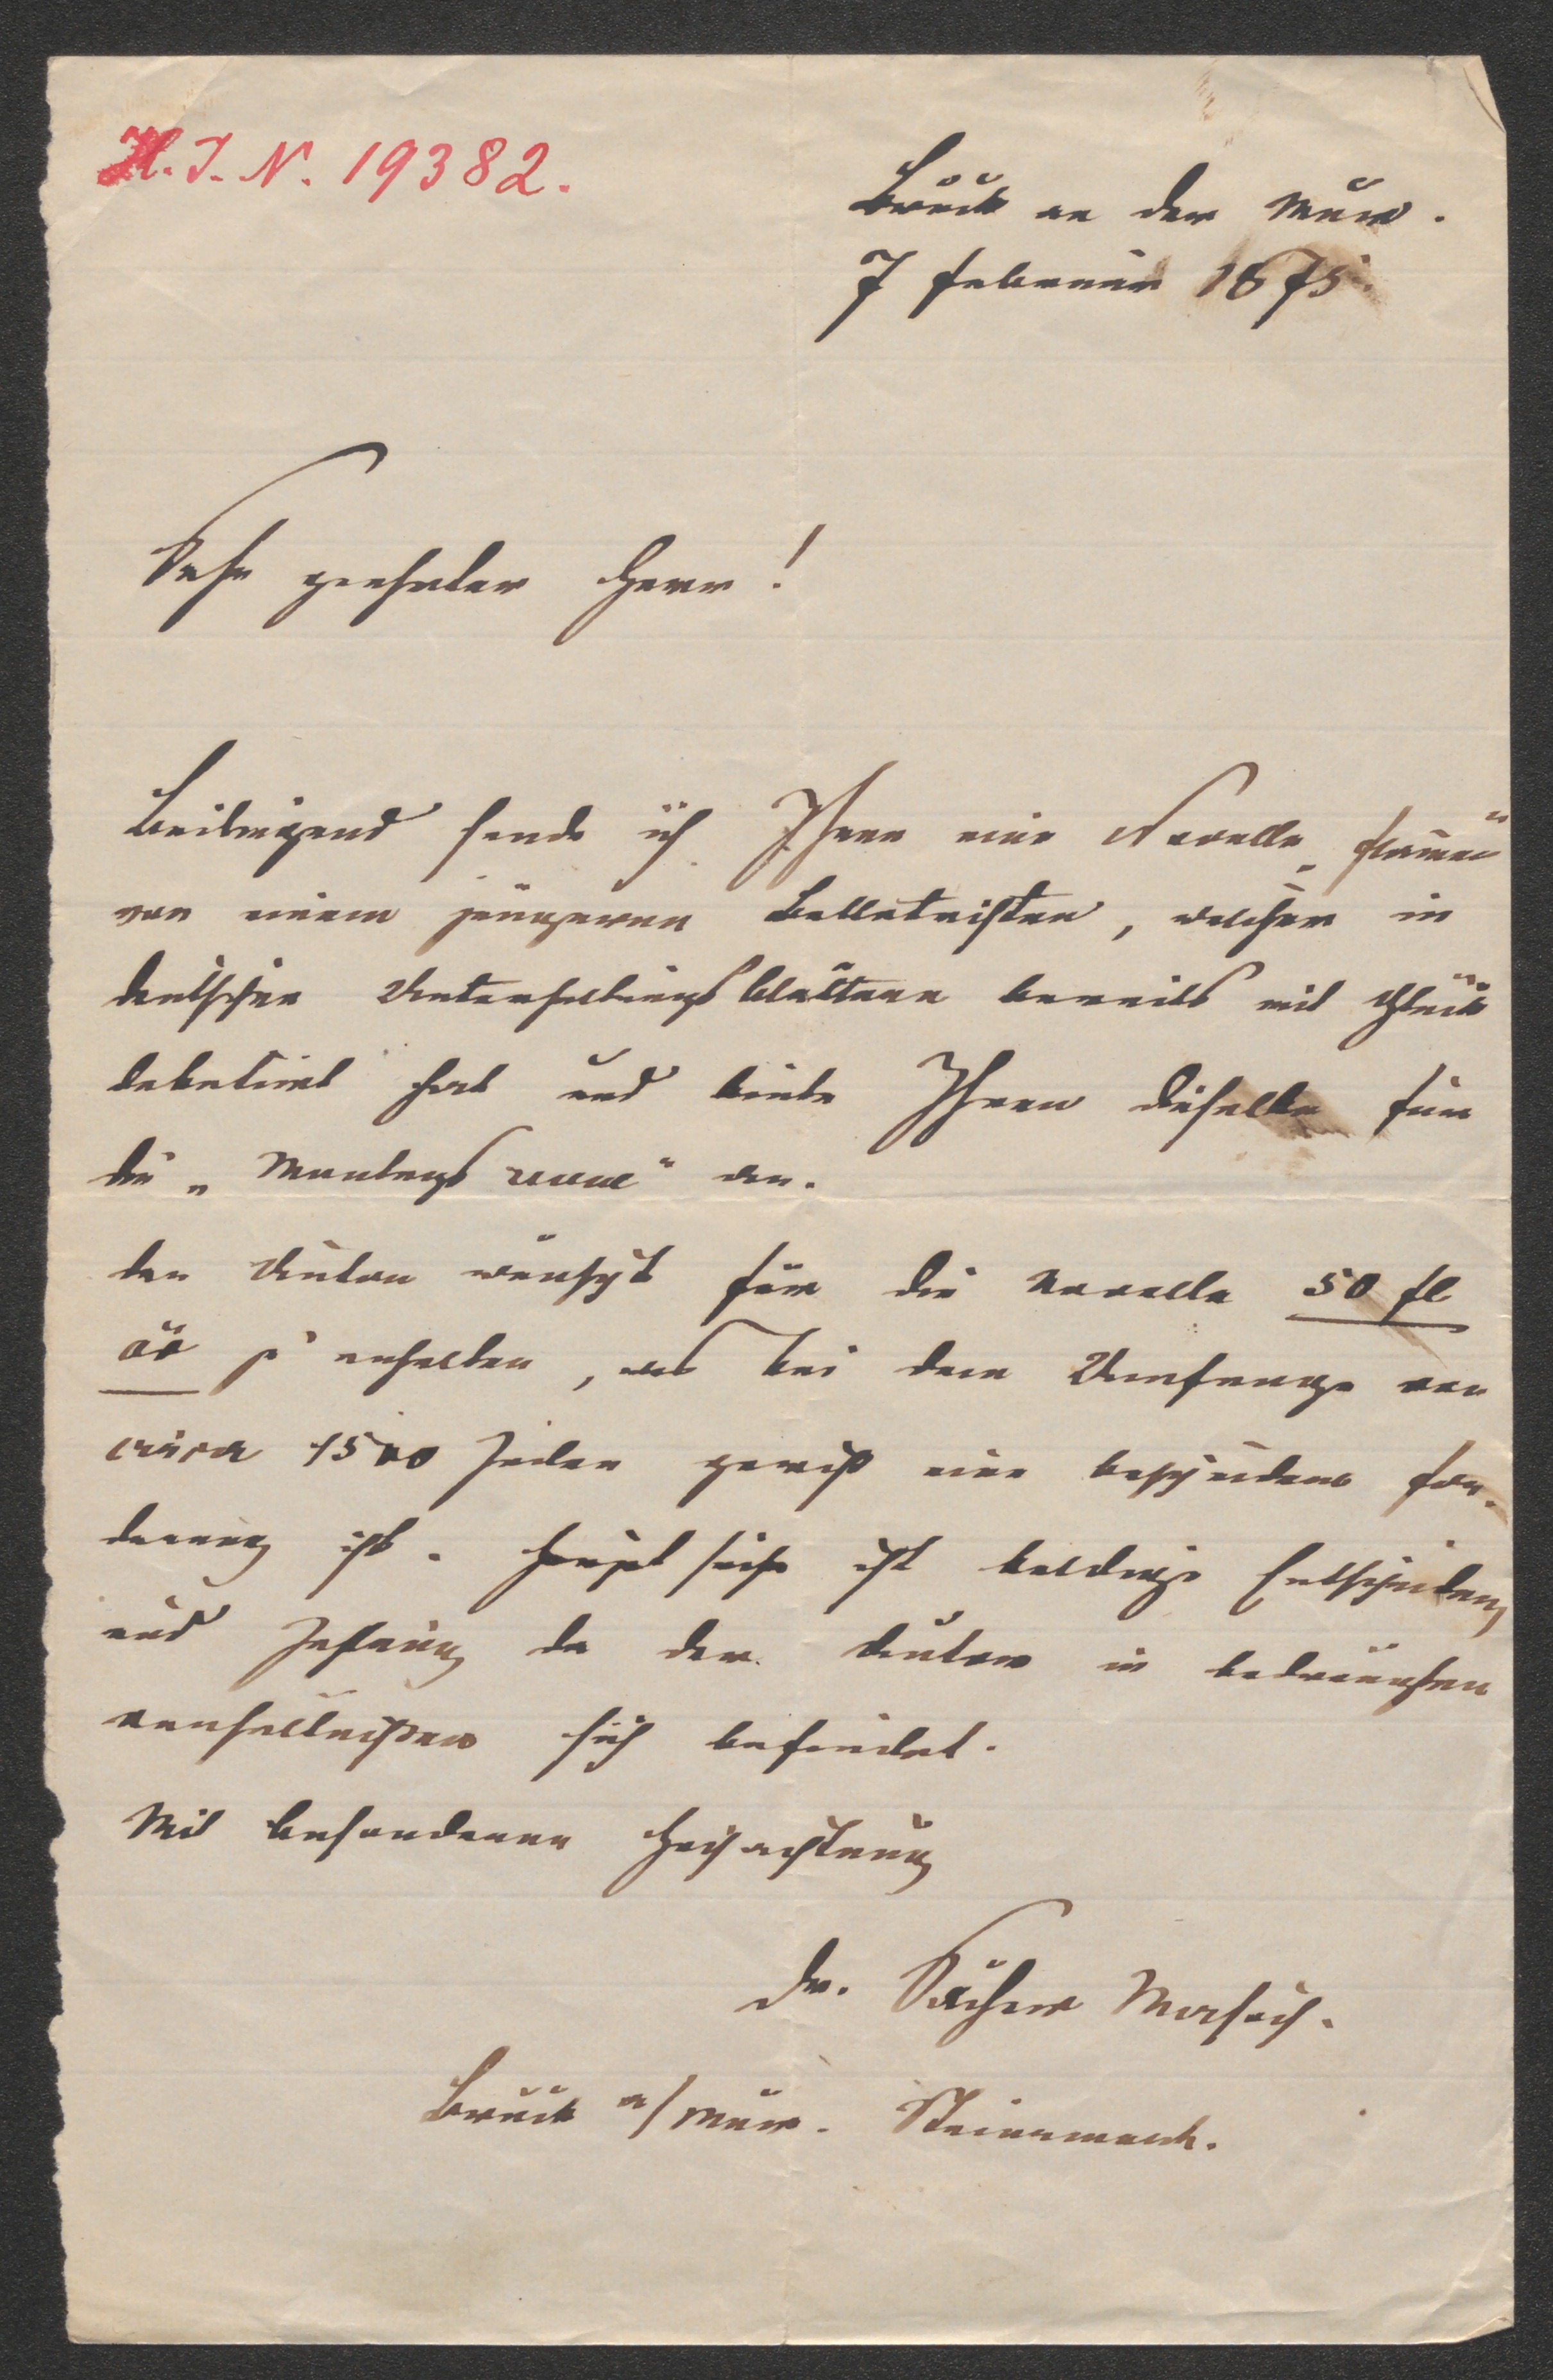 H. I. N. 19382.
Bruck an der Mur.
7 Februar 1875.
Sehr geehrter Herr!
Beiliegend sende ich Ihnen eine Novelle
von einem jüngeren Belletristen, welcher in
deutschen Unterhaltungsblättern bereits mit Glück
debutirt hat und biete Ihnen dieselbe für
die „Montags revue" an.
Der Autor wünscht für die Novelle 50 fl
öö z' erhalten, was bei dem Umfange von
circa 1500 Zeilen gewiß eine bescheidene For-
derung ist. Hauptsache ist baldige Entscheidung
und Zahlung da der Autor in bedrängten
verhältnißen sich befindet.
Mit besonderer Hochachtung
Dr. Sacher Masoch.
Bruck a/Mur. Steiermark.